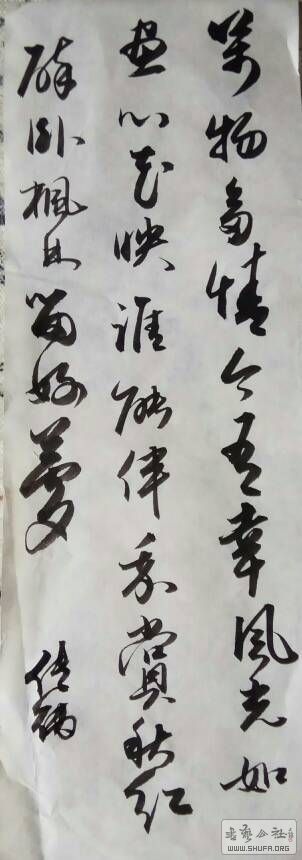 万物多情今有幸风光如
画心花映谁能伴我赏秋红
醉卧枫林留好梦
书艺公社
WWW.SHUFA.ORG